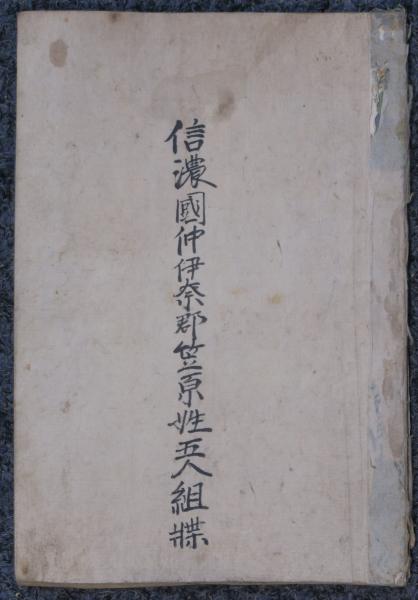 信濃國仲伊奈郡笠原姓五人組牃